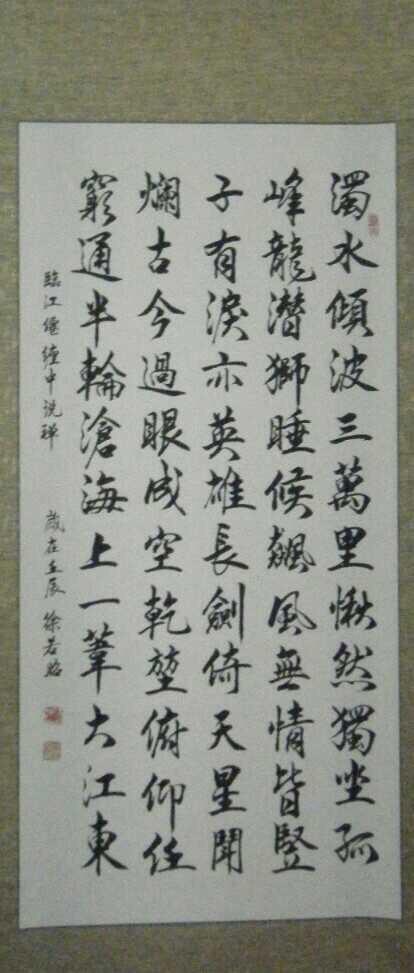 濁水傾波三萬里愀然獨坐孤
峰龍潛獅睡候飆風無情皆豎
子有淚亦英雄長劍倚天星聞
爛古今過眼成空乾堃俯仰任
窮通半輪滄海上一葦大江東
臨江僊纏中說禪 歲在壬辰 徐若